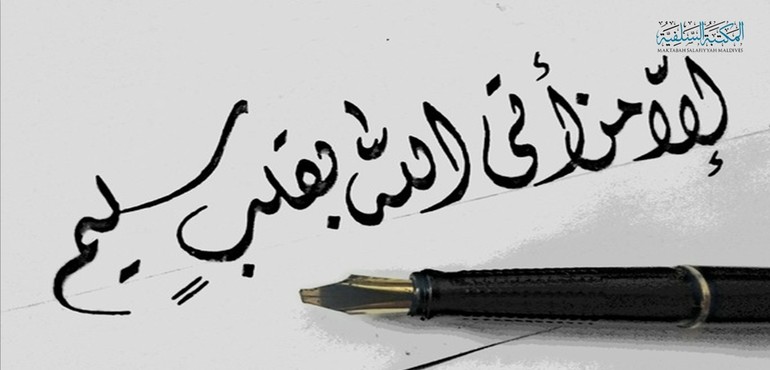 المكتبة السلفية
MAKTABAH SALAFIYYAH MALDIVES
إلاّ من أتى اللّٰه بقلبٍ سليم